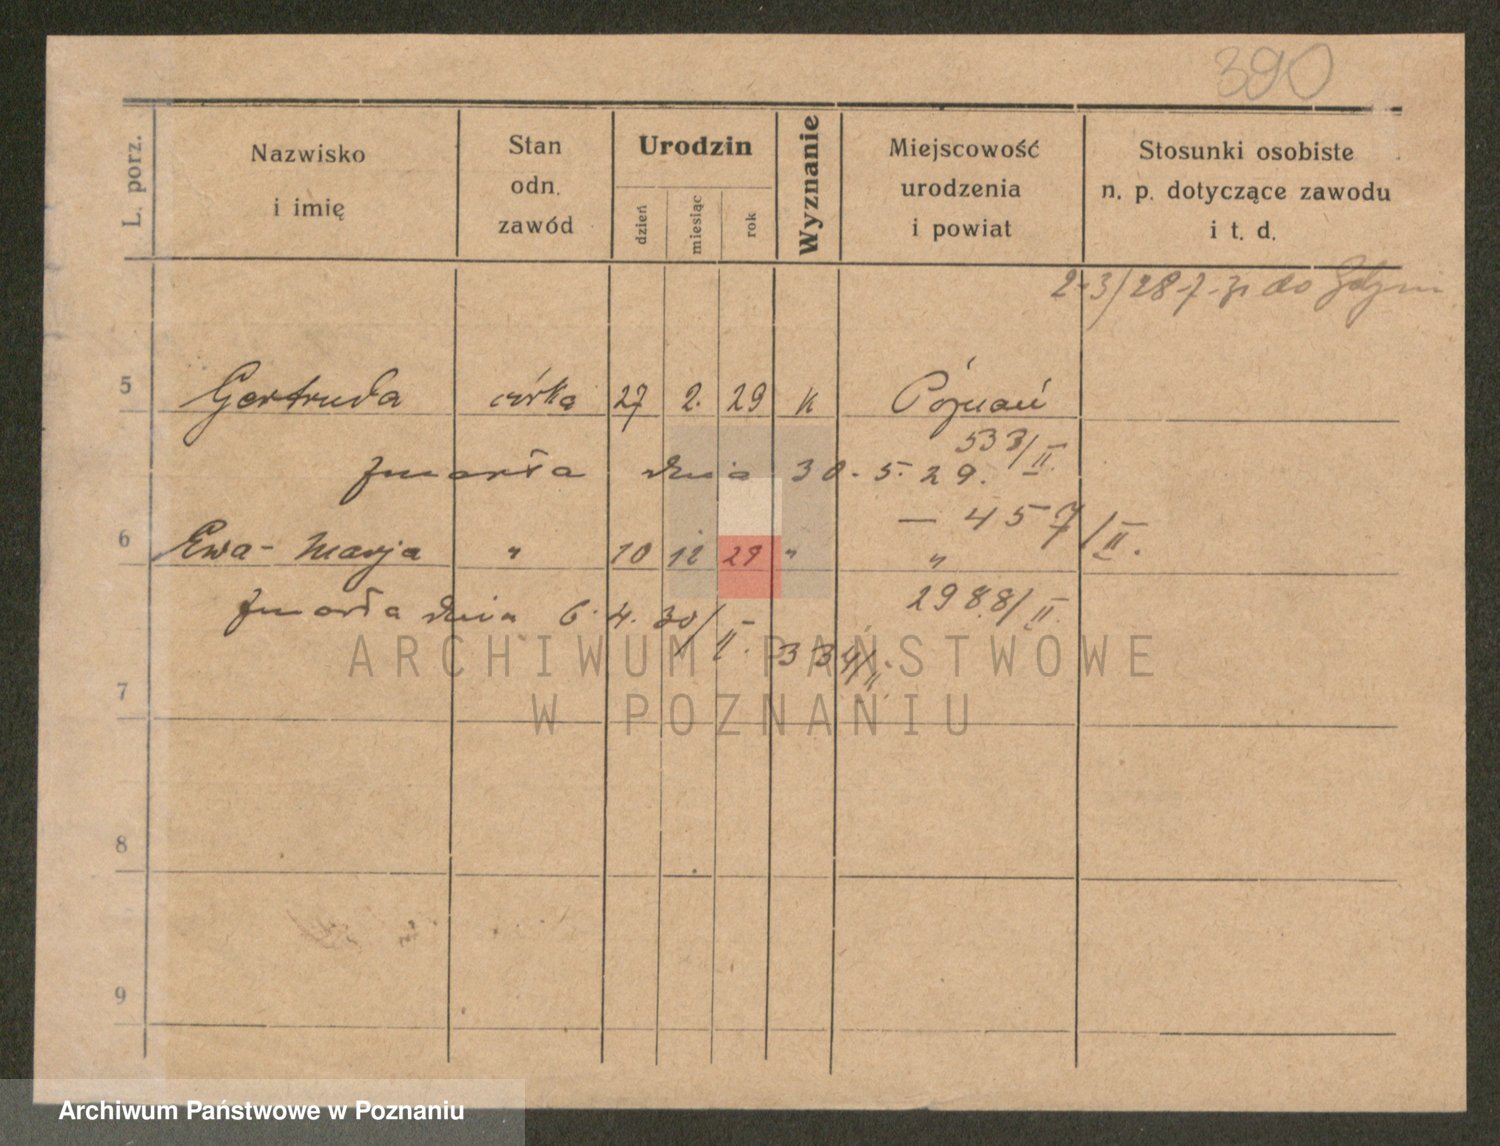 390
L. porz.
Nazwisko
i imię
Stan
odn.
zawód
Urodzin
dzień
miesiąc
rok
Wyznanie
Miejscowość
urodzenia
i powiat
Stosunki osobiste
n. p. dotyczące zawodu
i t. d.
2-3/28-7-31 do Gdyni
5 Gertruda córka 27 2. 29 K Poznań
533/II.
zmarła dnia 30. 5. 29.
— 457/II.
6 Ewa-Marja " 10 12 29 " "
2988/II.
zmarła dnia 6. 4. 30/II.
334/II.
7
8
9
ARCHIWUM PAŃSTWOWE
W POZNANIU
Archiwum Państwowe w Poznaniu